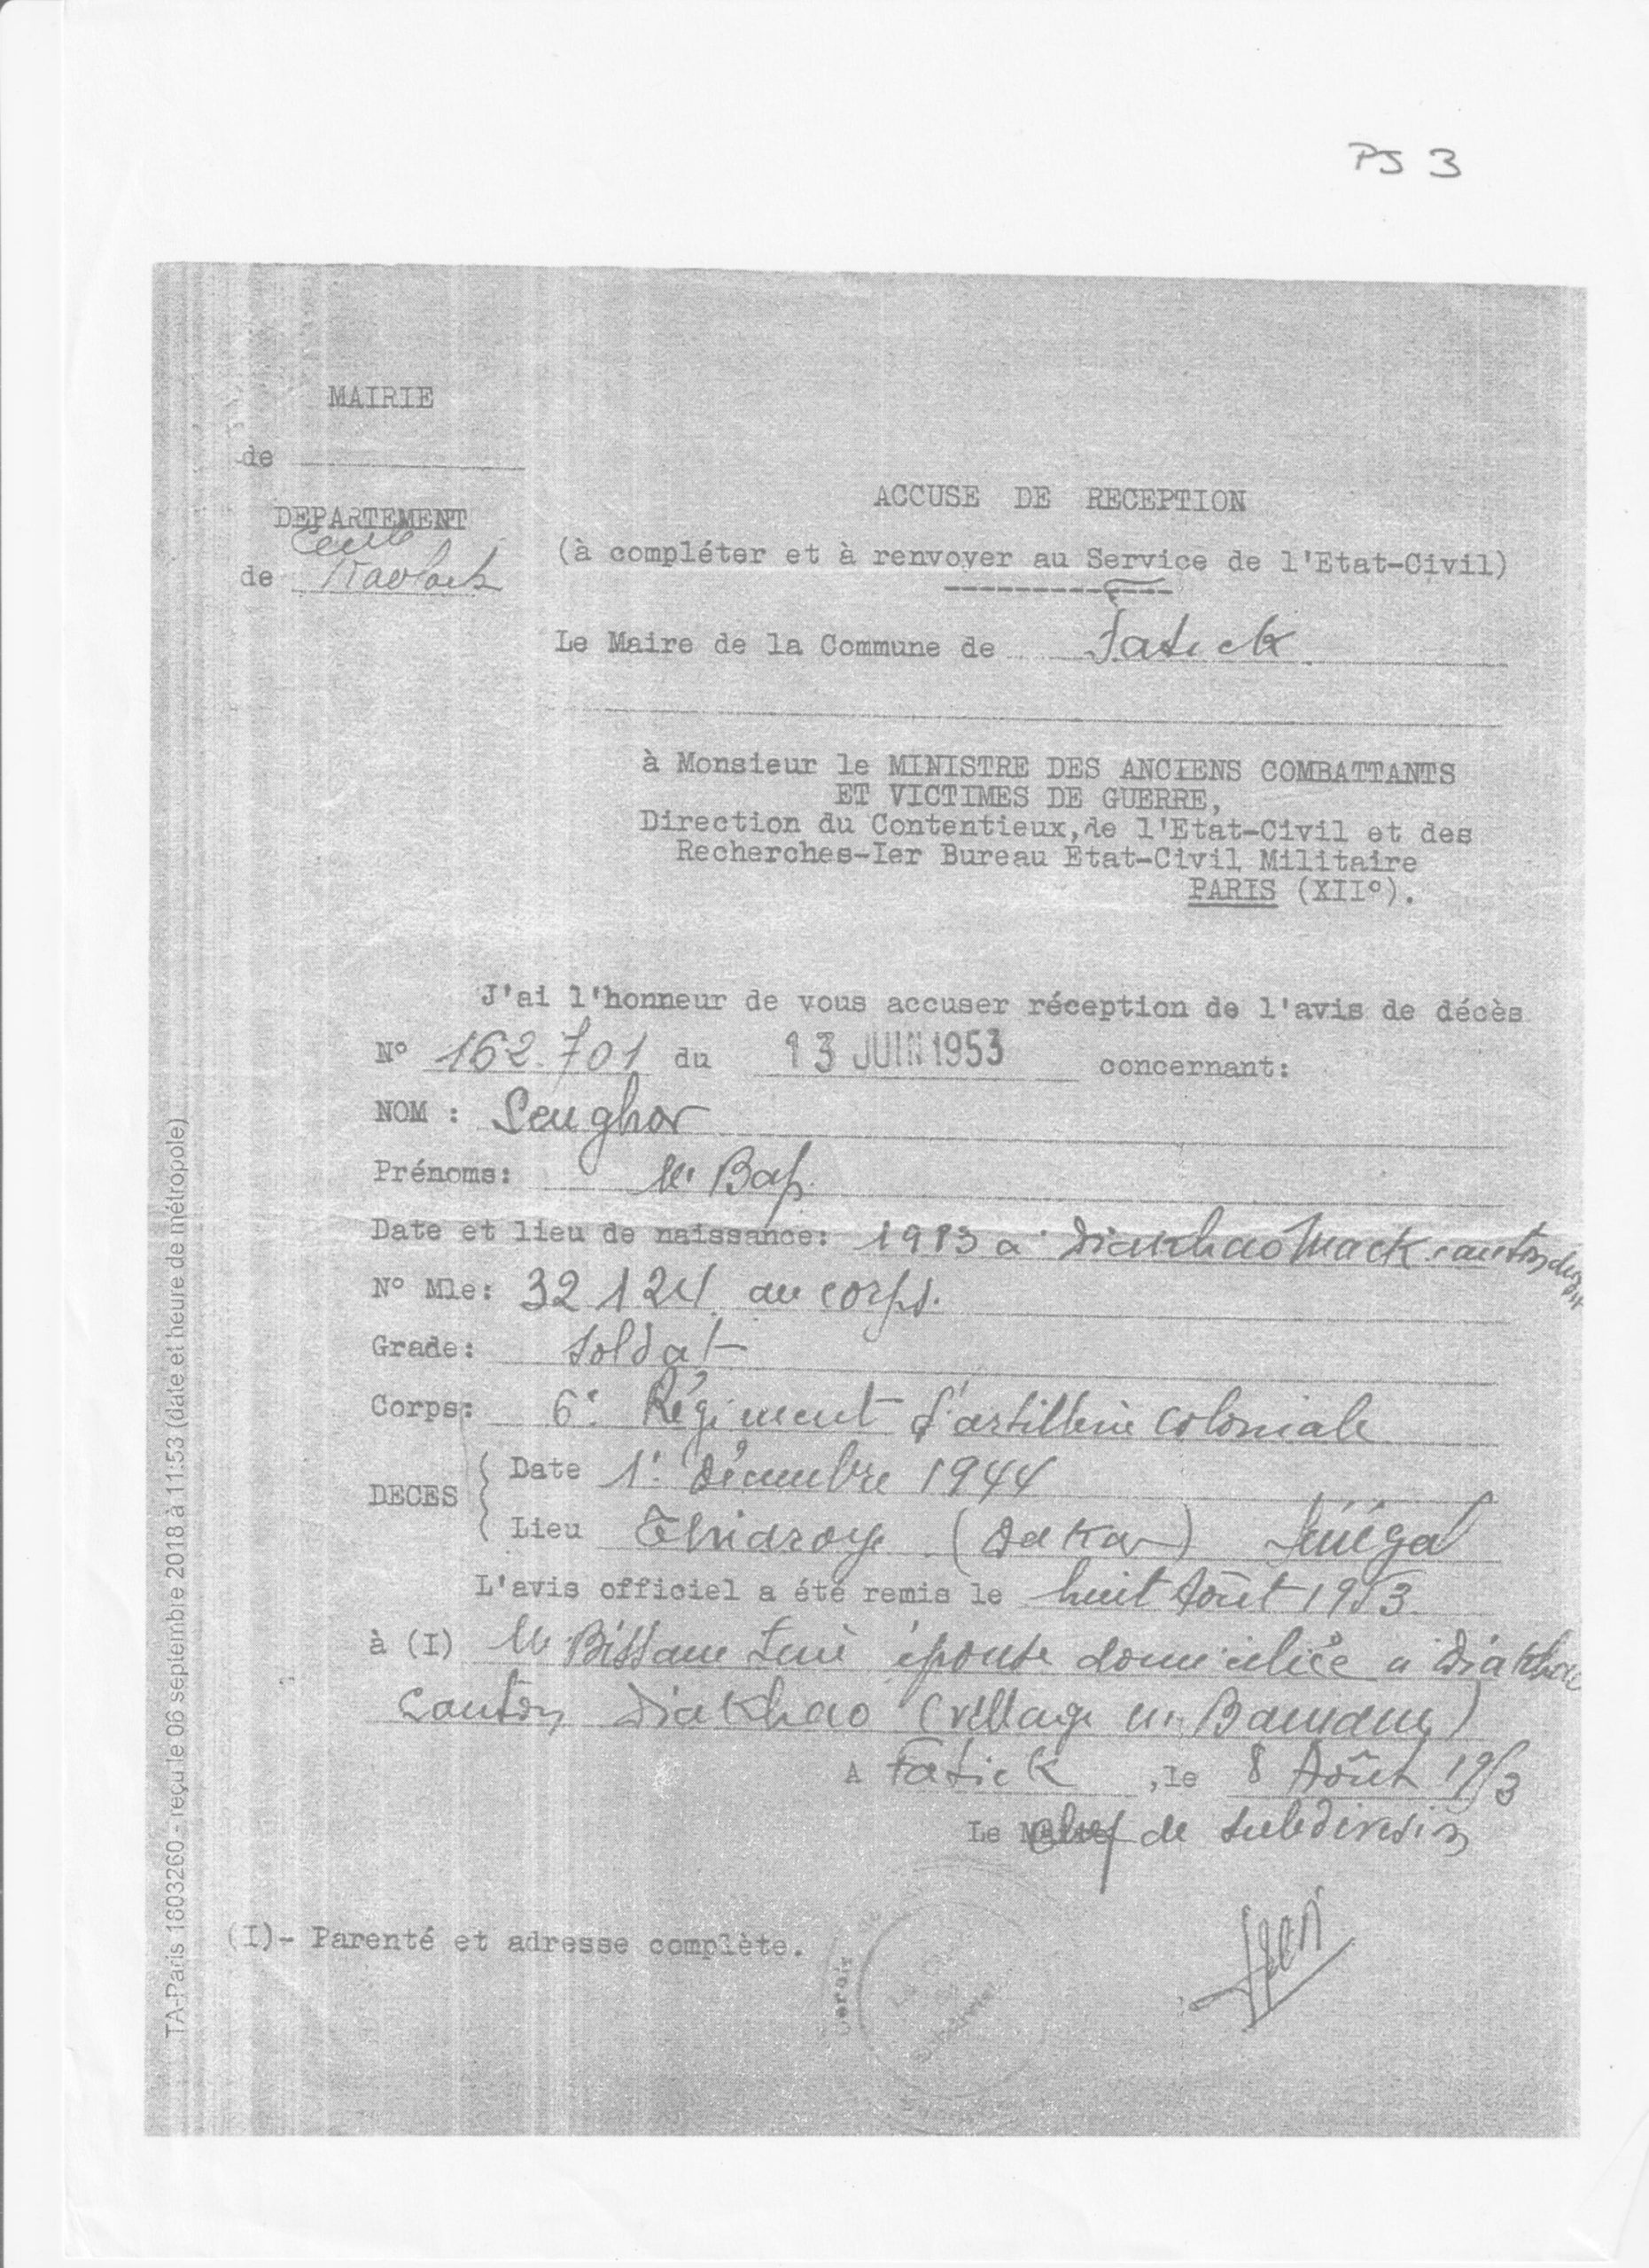 PS 3
MAIRIE
de
DEPARTEMENT
Cercle
de Kaolack
ACCUSE DE RECEPTION
(à compléter et à renvoyer au Service de l'Etat-Civil)
Le Maire de la Commune de Fatick
à Monsieur le MINISTRE DES ANCIENS COMBATTANTS
ET VICTIMES DE GUERRE,
Direction du Contentieux, de l'Etat-Civil et des
Recherches-Ier Bureau Etat-Civil Militaire
PARIS (XII°).
J'ai l'honneur de vous accuser réception de l'avis de décès
N° 162.701 du 13 JUIN 1953 concernant:
NOM : Senghor
Prénoms: M' Bap
Date et lieu de naissance: 1913 à Diakhao Mack canton dudit
N° Mle: 32124 au corps.
Grade: soldat
Corps: 6e Régiment d'artillerie coloniale
DECES { Date 1er Décembre 1944
Lieu Thiaroye (Dakar) Sénégal
L'avis officiel a été remis le huit Août 1953
à (I) M' Bissane épouse domiciliée à Diakhao
canton Diakhao (village)
A Fatick, le 8 Août 1953
Le Chef de subdivision
(I)- Parenté et adresse complète.
TA-Paris 1603260 - reçu le 06 septembre 2018 à 11:53 (date et heure de métropole)